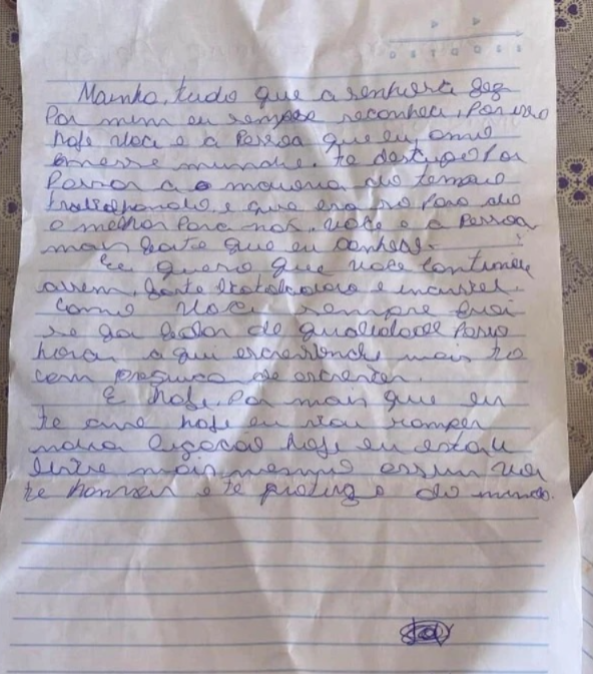 Mainha, tudo que a senhora fez
Por mim eu sempre reconheci, Por isso
hoje você e a Pessoa que eu amo
nesse mundo. te desculpo Por
Passar a maioria do tempo
trabalhando, e que era so para da
o melhor Para nos. você e a Pessoa
mais forte que eu conheço.
Eu quero que você continue
assim, forte trabalhadora e incrivel.
Como você sempre foi
se for falar de qualidades Passo
horas aqui escrevendo, mais to
com preguiça de escrever.
E hoje, Por mais que eu
te amo hoje eu vou romper
nossa ligação hoje eu
mais mesmo assim vou
te honrar e te protejo do mundo.